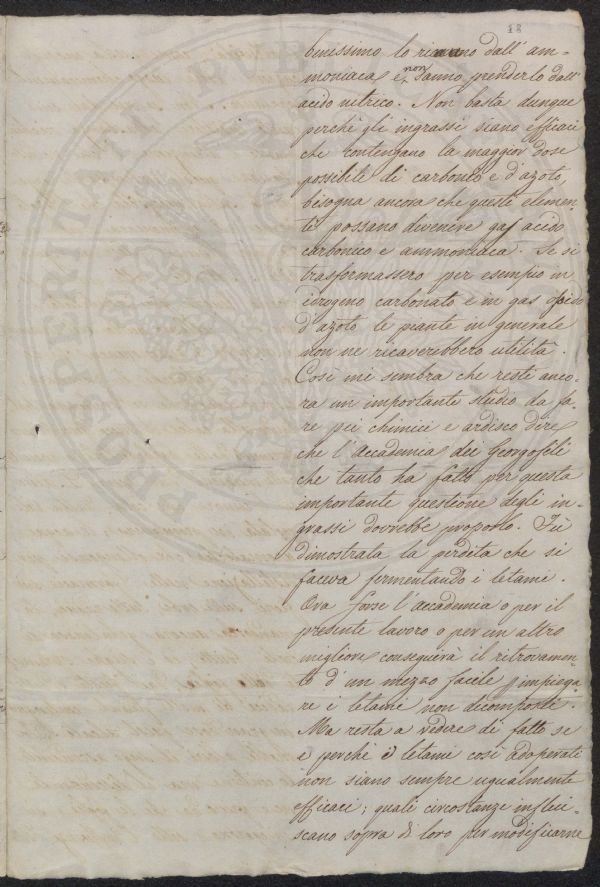 18
benissimo lo ricavano dall' am-
moniaca e non sanno prenderlo dall'
acido nitrico. Non basta dunque
perchè gli ingrassi siano efficaci
che contengano la maggior dose
possibile di carbonio e d'azoto,
bisogna ancora che questi elemen-
ti possano divenire gas acido
carbonico e ammoniaca. Se si
trasformassero per esempio in
idrogeno carbonato e in gas ossido
d'azoto le piante in generale
non ne ricaverebbero utilità.
Così mi sembra che resti anco-
ra un importante studio da fa-
re pei chimici e ardisco dire
che l'Accademia dei Georgofili
che tanto ha fatto per questa
importante questione degli in-
grassi dovrebbe proporlo. Fu
dimostrata la perdita che si
faceva fermentando i letami.
Ora forse l'accademia o per il
presente lavoro o per un altro
migliore conseguirà il ritrovamen-
to d'un mezzo facile p impiega-
re i letami non dicomposti.
Ma resta a vedere di fatto se
e perchè i letami così adoperati
non siano sempre ugualmente
efficaci; quali circostanze influi-
scano sopra di loro per modificarne
PROSPERITATI PUBL